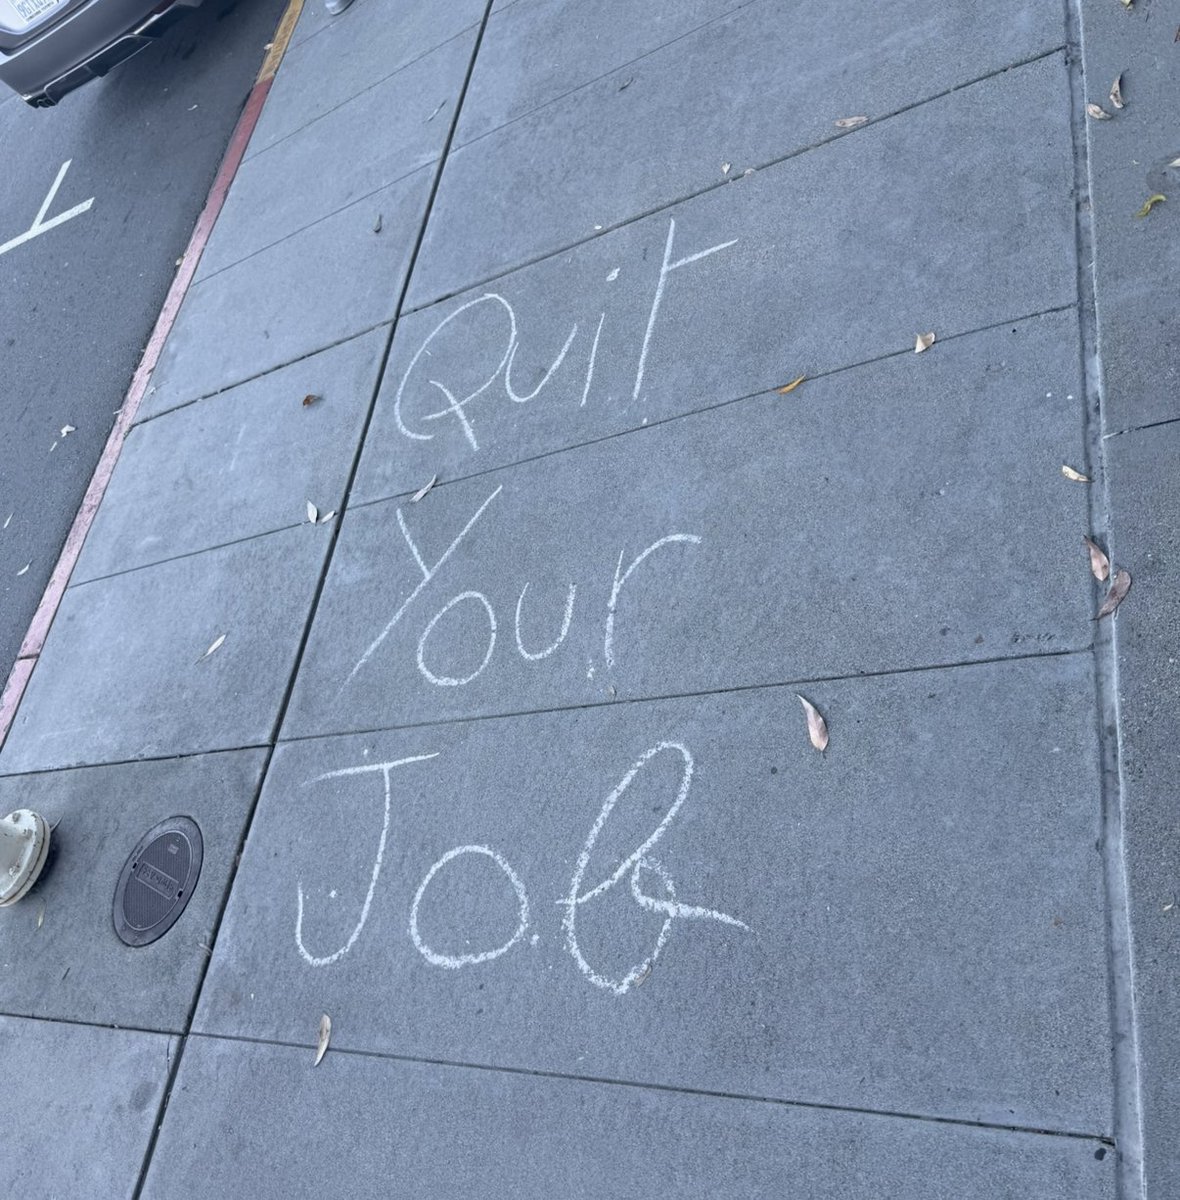 Quit
Your
Job